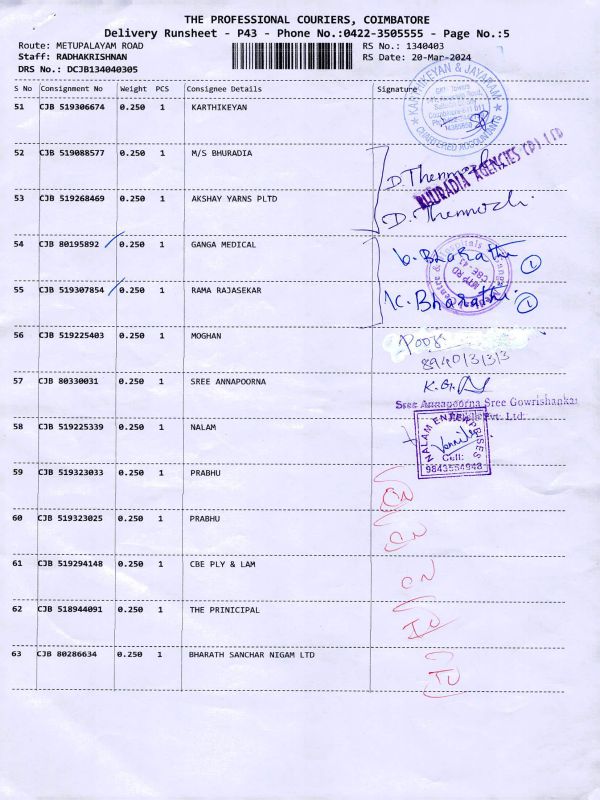 THE PROFESSIONAL COURIERS, COIMBATORE
Delivery Runsheet - P43 - Phone No.:0422-3505555 - Page No.:5
Route: METUPALAYAM ROAD RS No.: 1340403
Staff: RADHAKRISHNAN RS Date: 20-Mar-2024
DRS No.: DCJB134040305
S No Consignment No Weight PCS Consignee Details Signature
51 CJB 519306674 0.250 1 KARTHIKEYAN
KARTHIKEYAN & JAYARAM
CHARTERED ACCOUNTANTS
52 CJB 519088577 0.250 1 M/S BHURADIA
BHURADIA AGENCIES (P) LTD
53 CJB 519268469 0.250 1 AKSHAY YARNS PLTD
54 CJB 80195892 0.250 1 GANGA MEDICAL b. Bharathi 1
55 CJB 519307854 0.250 1 RAMA RAJASEKAR K. Bharathi 1
56 CJB 519225403 0.250 1 MOGHAN
57 CJB 80330031 0.250 1 SREE ANNAPOORNA
Sree Annapoorna Sree Gowrishankar
Pvt. Ltd.
58 CJB 519225339 0.250 1 NALAM
NALAM ENTERPRISES
Cell:
9843554948
59 CJB 519323033 0.250 1 PRABHU CN
60 CJB 519323025 0.250 1 PRABHU CN
61 CJB 519294148 0.250 1 CBE PLY & LAM CN
62 CJB 518944091 0.250 1 THE PRINICIPAL
63 CJB 80286634 0.250 1 BHARATH SANCHAR NIGAM LTD